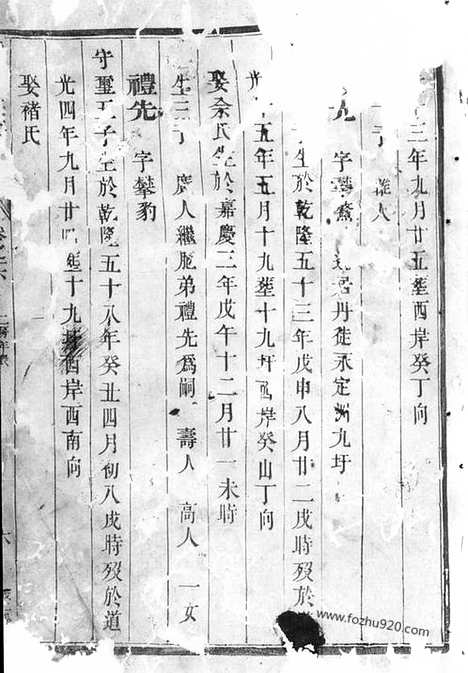 三年九月廿五塟西岸癸丁向
子 人
先 字攀 丹徒永定洲九圩
生於乾隆五十三年戊申八月廿二戌時歿於
光 五年五月十九塟十九圩西岸癸山丁向
娶余氏生於嘉慶三年戊午十二月廿一未時
生三子 廣人繼胞弟禮先爲嗣 壽人 高人 一女
禮先 字攀豹
守璽五子生於乾隆五十八年癸丑四月初八戌時歿於道
光四年九月廿 塟十九圩西岸西南向
娶褚氏
六
www.fozhu920.com